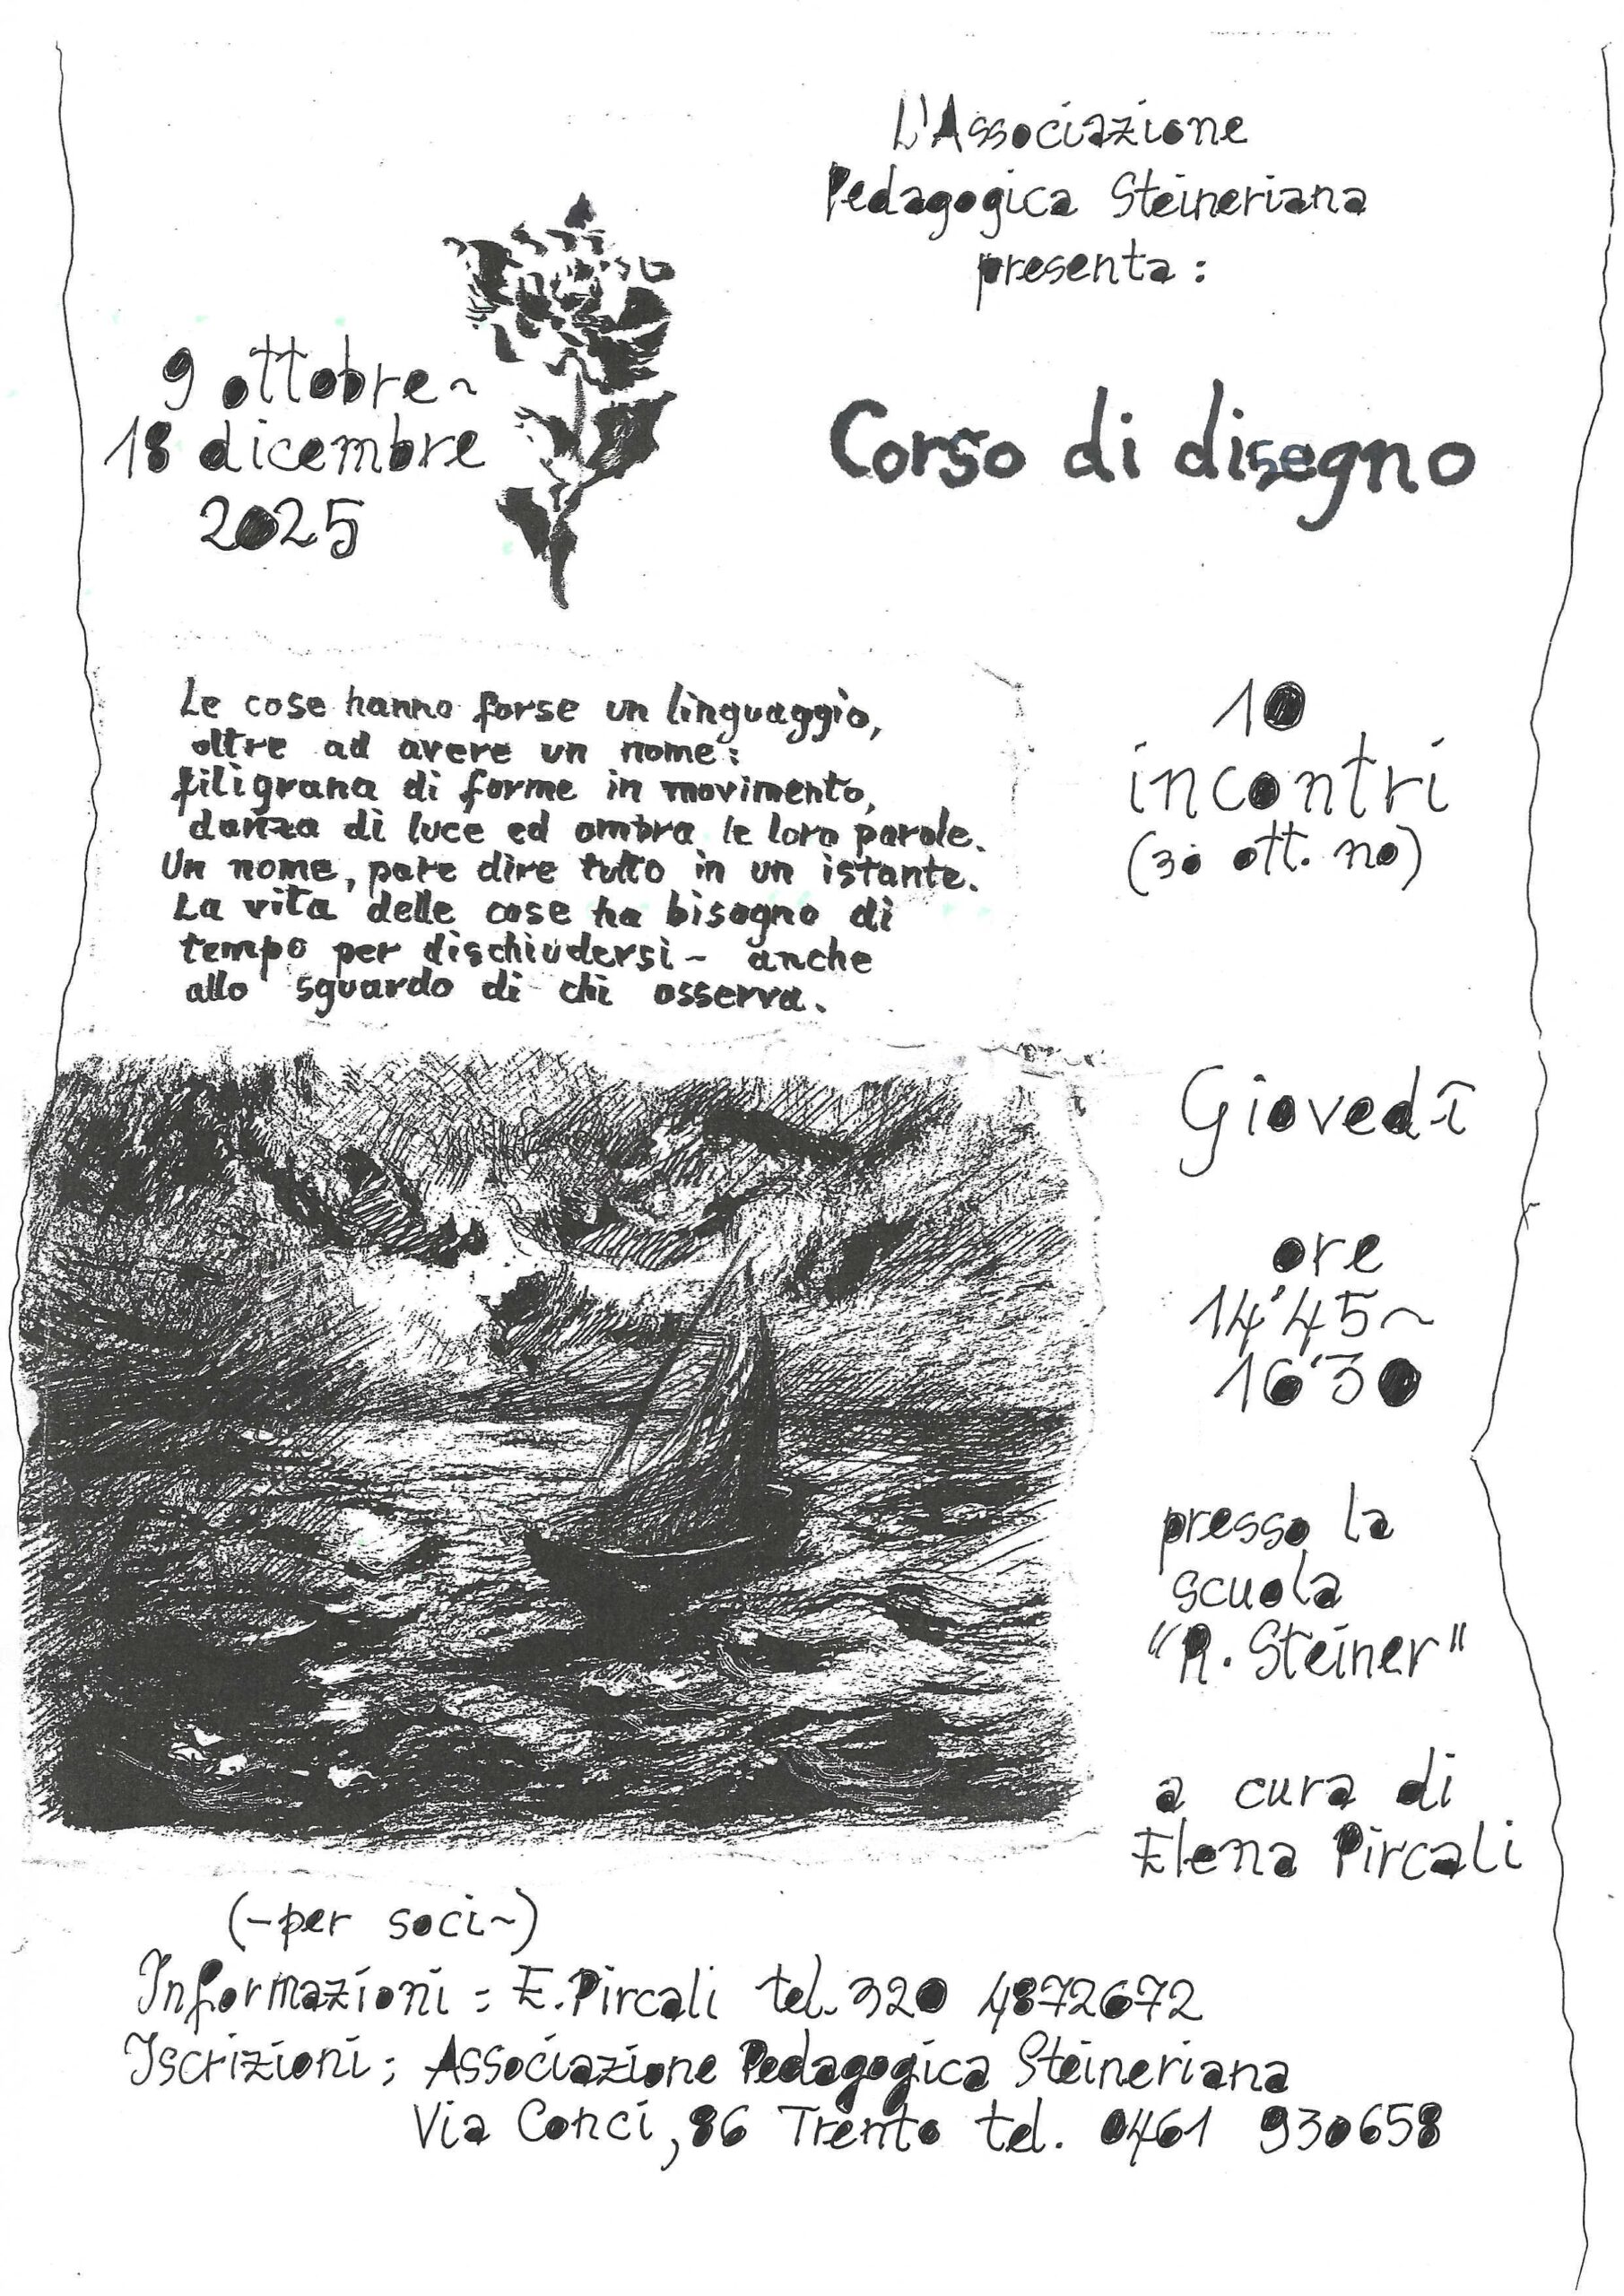 L'Associazione
Pedagogica Steineriana
presenta:
9 ottobre~
18 dicembre
2025
Corso di disegno
Le cose hanno forse un linguaggio,
oltre ad avere un nome:
filigrana di forme in movimento,
danza di luce ed ombra le loro parole.
Un nome, pare dire tutto in un istante.
La vita delle cose ha bisogno di
tempo per dischiudersi - anche
allo sguardo di chi osserva.
10
incontri
(30 ott. no)
Giovedì
ore
14'45~
16'30
presso la
scuola
"R. Steiner"
a cura di
Elena Pircali
(-per soci~)
Informazioni: E. Pircali tel. 320 4872672
Iscrizioni: Associazione Pedagogica Steineriana
Via Conci, 86 Trento tel. 0461 930658